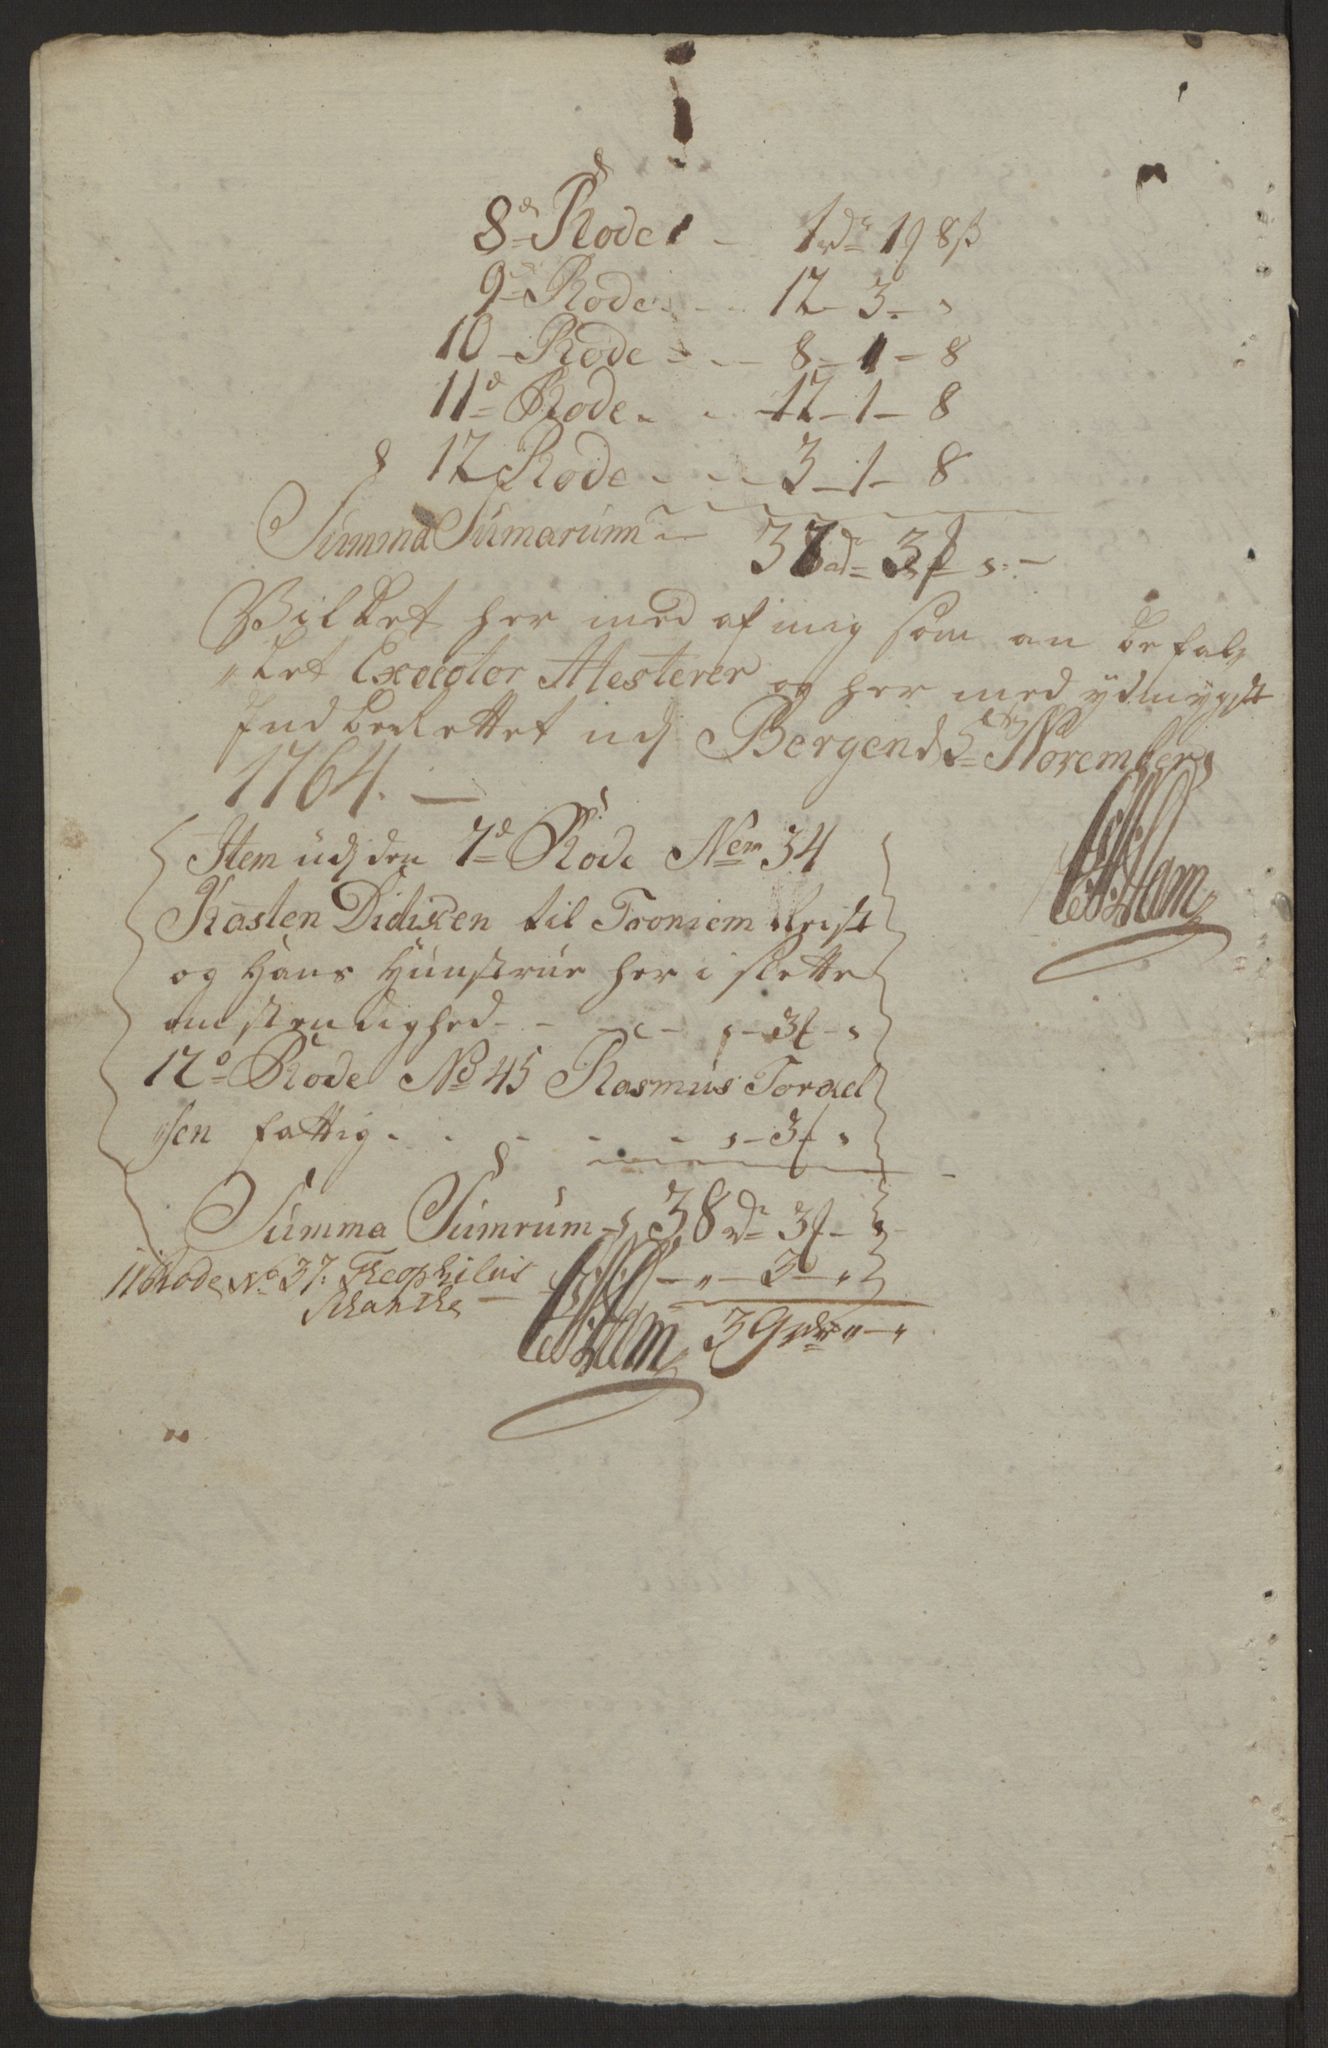 8de Rode - 1 rdr 1 f 8 ß
9de Rode - - 12 - 3 - "
10 - Rode - - 8 - 1 - 8
11te Rode - - 12 - 1 - 8
12 Rode - - 3 - 1 - 8
Summa Sumarum - 37 rdr 3 f " -
Vilket her med af mig som an befal„
„ket Execqtor Atesterer og her med ydmygst
Indberettet udj Bergen d 5te November
1764. —
Item udj den 7de Rode Nem 34
Kasten Didixen til Troniem Reist
og Hans Hunstrue her i slette
omstendighed - - - " - 3 f - "
12o Rode No 45 Rasmus Torxel
„sen fattig - - - - " - 3 f "
Summa Sumrum - 38 rdr 3 f - "
11 Rode No 37: Theophilus - " - 3 - "
Schantche -
39 rdr " - "